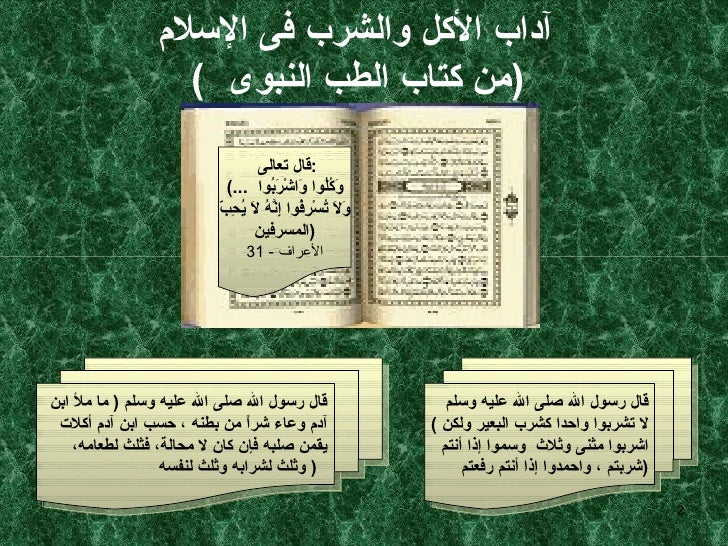 آداب الأكل والشرب فى الإسلام
(من كتاب الطب النبوى )
قال تعالى:
(... وَكُلُوا وَاشْرَبُوا
وَلاَ تُسْرِفُوا إِنَّهُ لاَ يُحِبّ
المسرفين)
الأعراف - 31
قال رسول الله صلى الله عليه وسلم
( لا تشربوا واحدا كشرب البعير ولكن
اشربوا مثنى وثلاث وسموا إذا أنتم
شربتم ، واحمدوا إذا أنتم رفعتم)
قال رسول الله صلى الله عليه وسلم ( ما ملأ ابن
آدم وعاء شراً من بطنه ، حسب ابن آدم أكلات
يقمن صلبه فإن كان لا محالة، فثلث لطعامه،
وثلث لشرابه وثلث لنفسه )
2